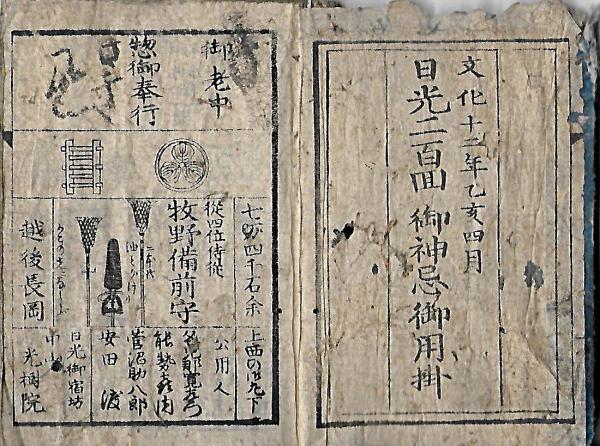 文化十二年乙亥四月
日光二百回御神忌御用掛
御老中
惣御奉行
七万四千石余
従四位侍従
牧野備前守
越後長岡
上西の御丸下
公用人
能勢
菅沼助八郎
安田 渡
日光御宿坊
中山
光樹院